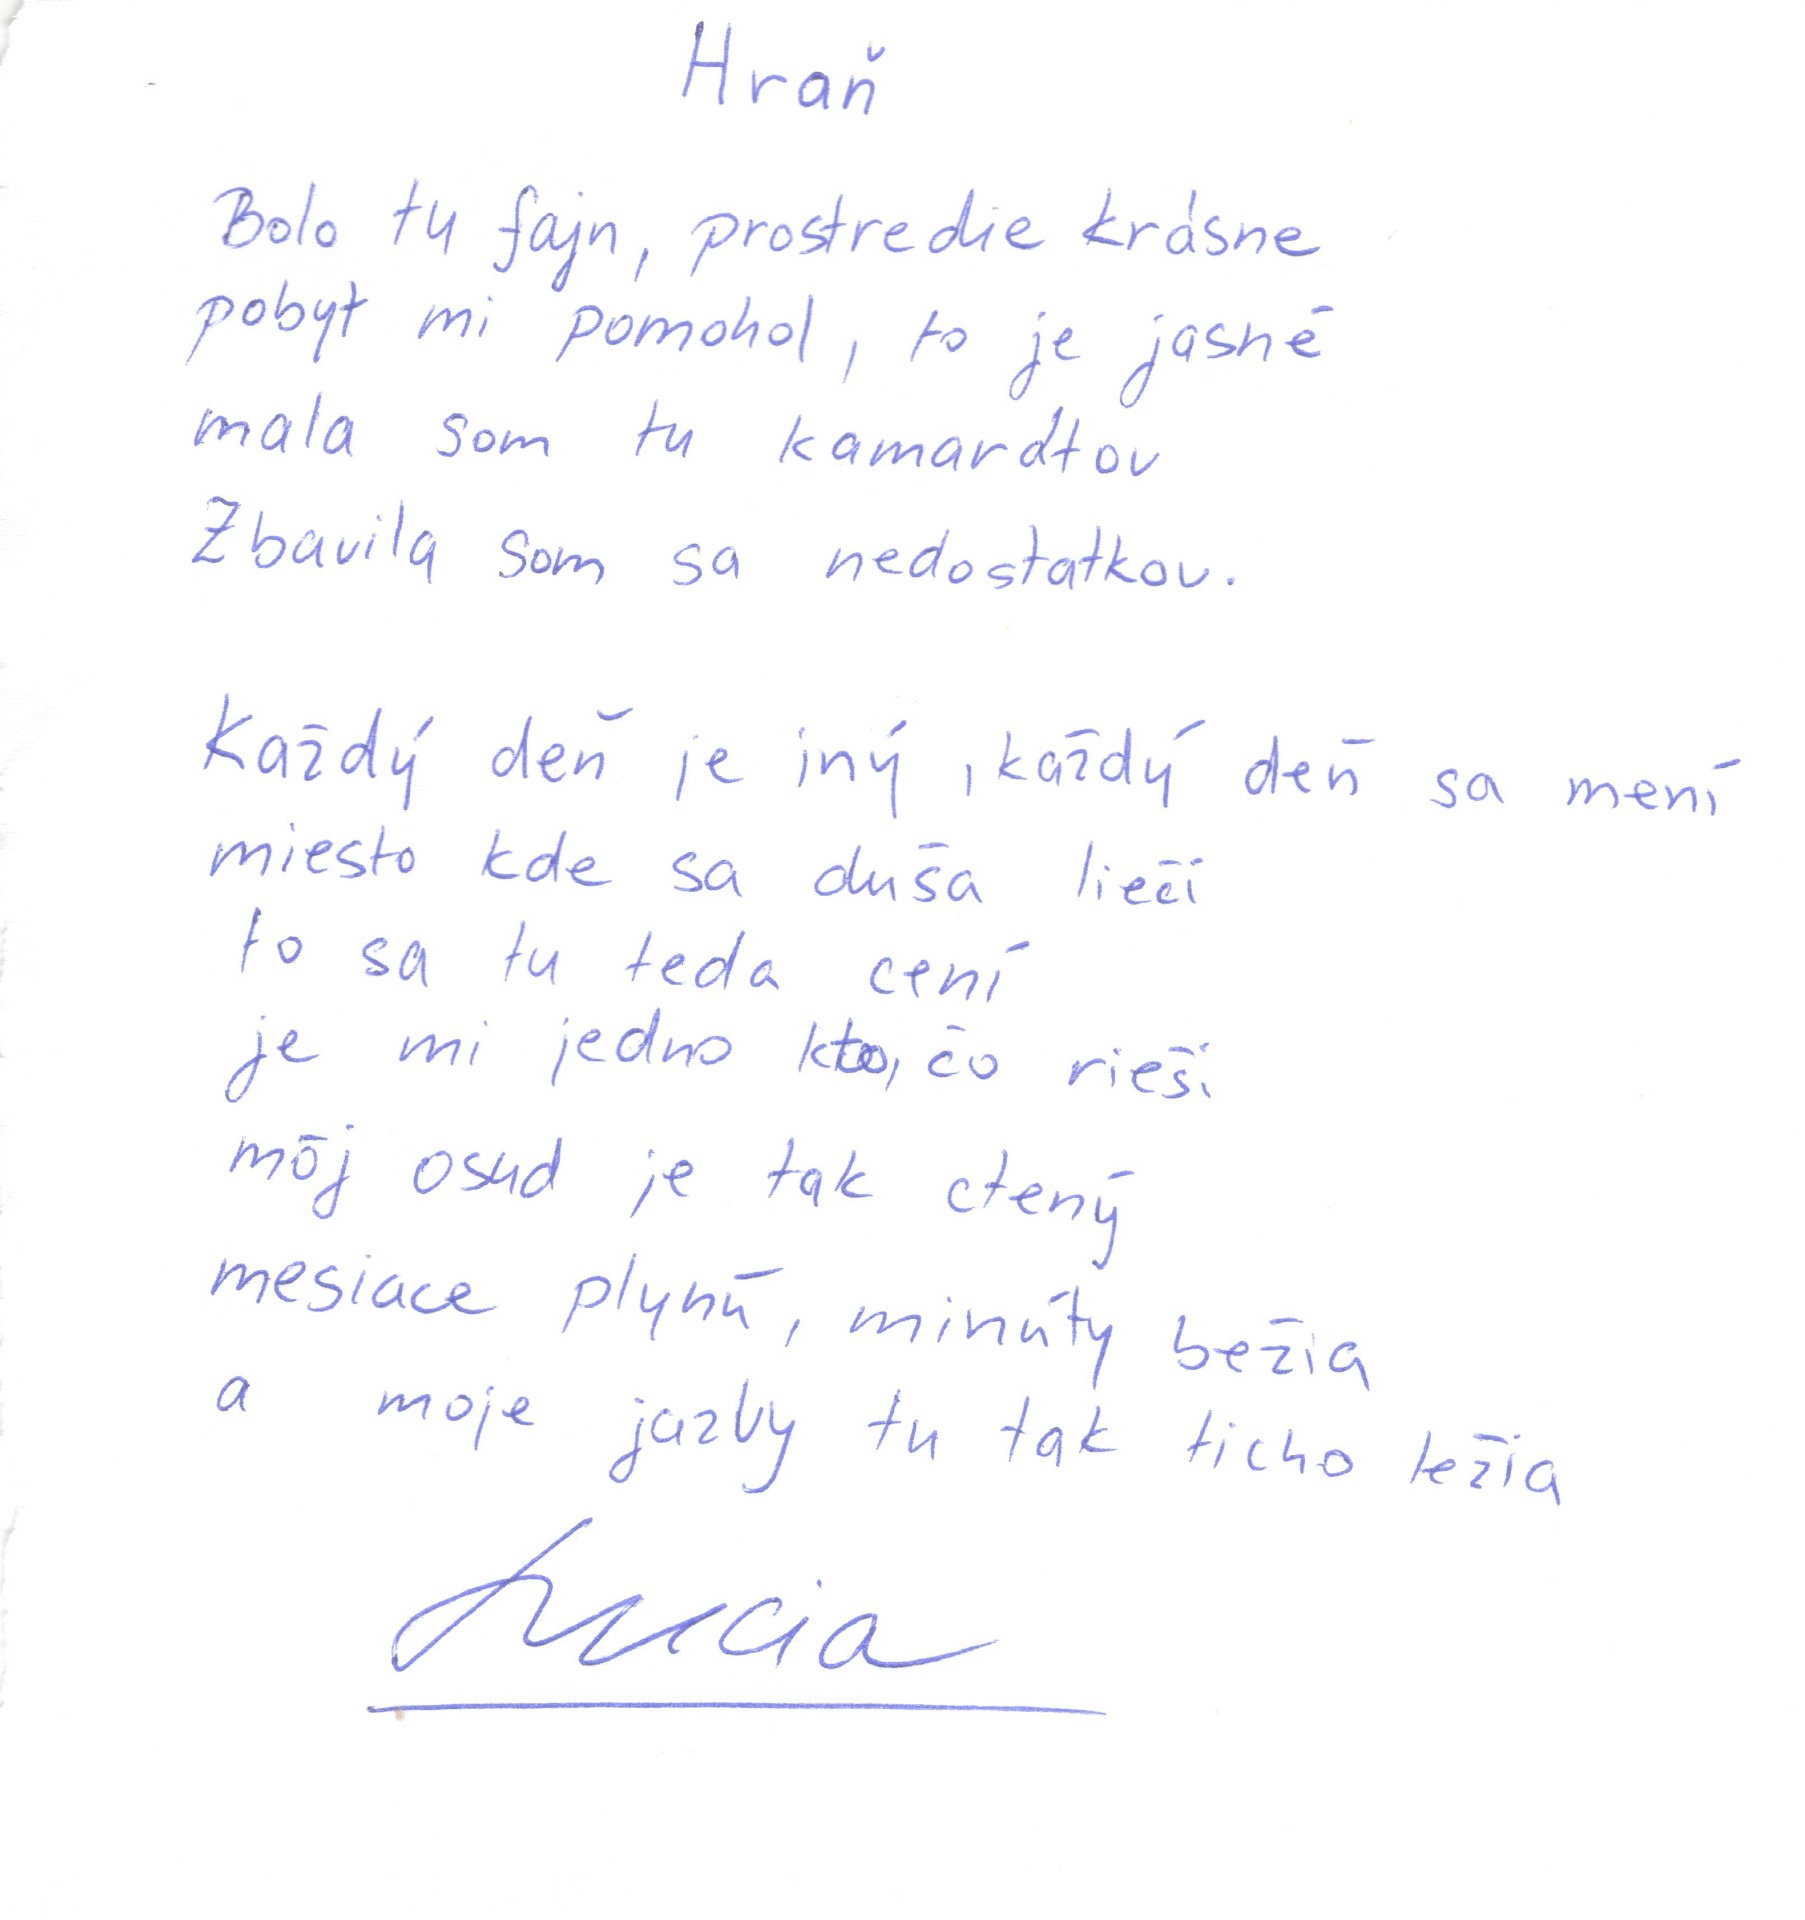 Hraň
Bolo tu fajn, prostredie krásne
pobyt mi pomohol, to je jasné
mala som tu kamarátov
Zbavila som sa nedostatkov.
Každý deň je iný, každý deň sa mení
miesto kde sa duša lieči
to sa tu teda cení
je mi jedno kto, čo rieši
môj osud je tak ctený
mesiace plynú, minúty bežia
a moje jazvy tu tak ticho ležia
Lucia